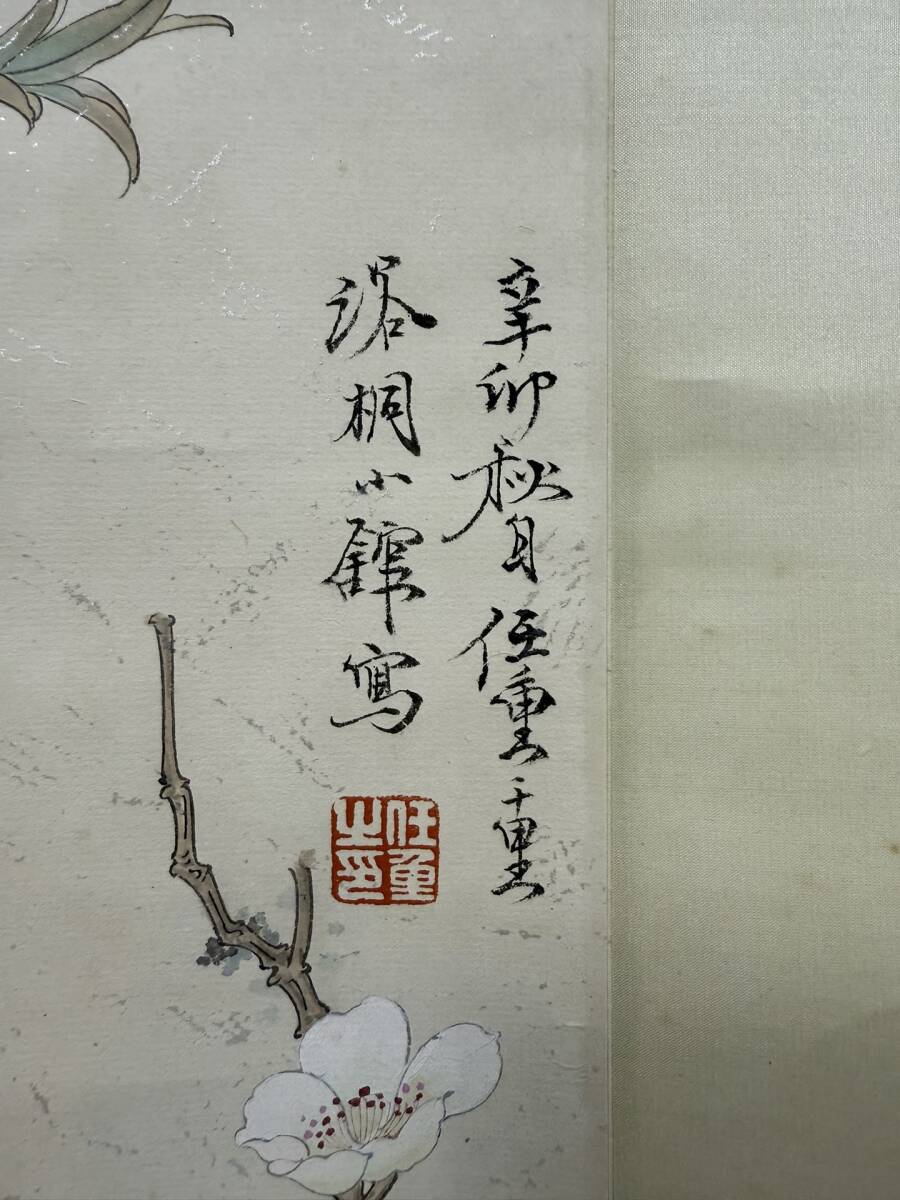 辛卯秋月任重重
浴桐小館寫
任重之印